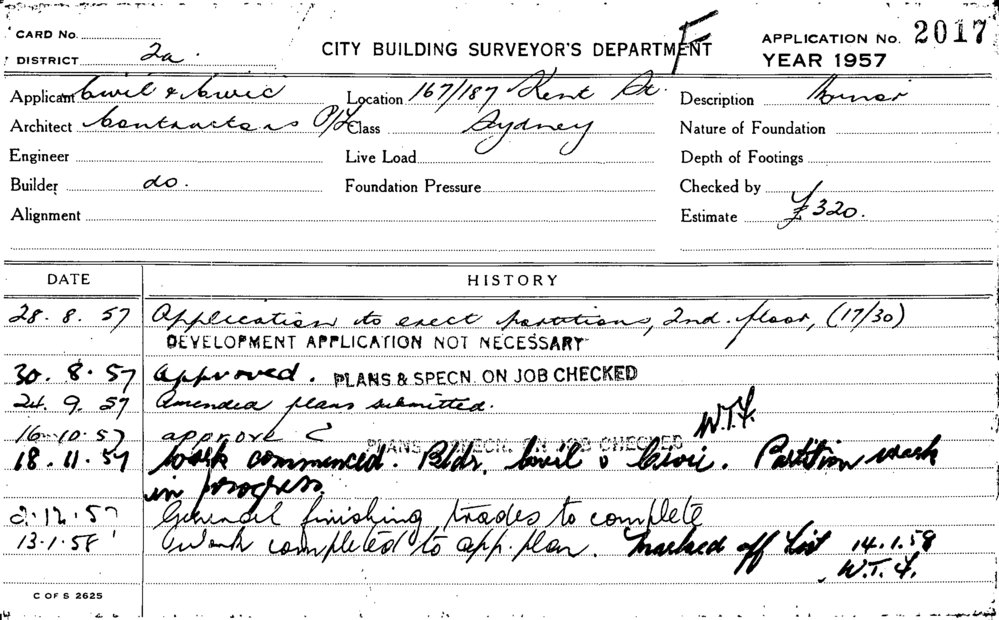 CARD No.
DISTRICT 2a.
CITY BUILDING SURVEYOR'S DEPARTMENT
F
APPLICATION No. 2017
YEAR 1957
Applicant Civil & Civic Location 167/187 Kent St. Description Minor
Architect Contractors P/L Class Sydney Nature of Foundation
Engineer Live Load Depth of Footings
Builder do. Foundation Pressure Checked by
Alignment Estimate £320.
DATE HISTORY
28. 8. 57 Application to erect partitions, 2nd. floor, (17/30)
DEVELOPMENT APPLICATION NOT NECESSARY
30. 8. 57 Approved. PLANS & SPECN. ON JOB CHECKED
24. 9. 57 Amended plans submitted.
W.T.F.
16-10-57 approve PLANS & SPECN. ON JOB CHECKED
18. 11. 57 Work commenced. Bldr. Civil & Civic. Partition work
in progress.
2.12.57 General finishing trades to complete
13.1.58 Work completed to app. plan. Marked off List 14.1.58
W.T.F.
C OF S 2625